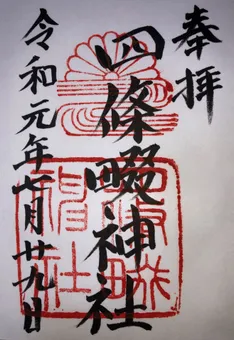 奉拝
四條畷神社
令和元年七月廿九日
四條畷神社